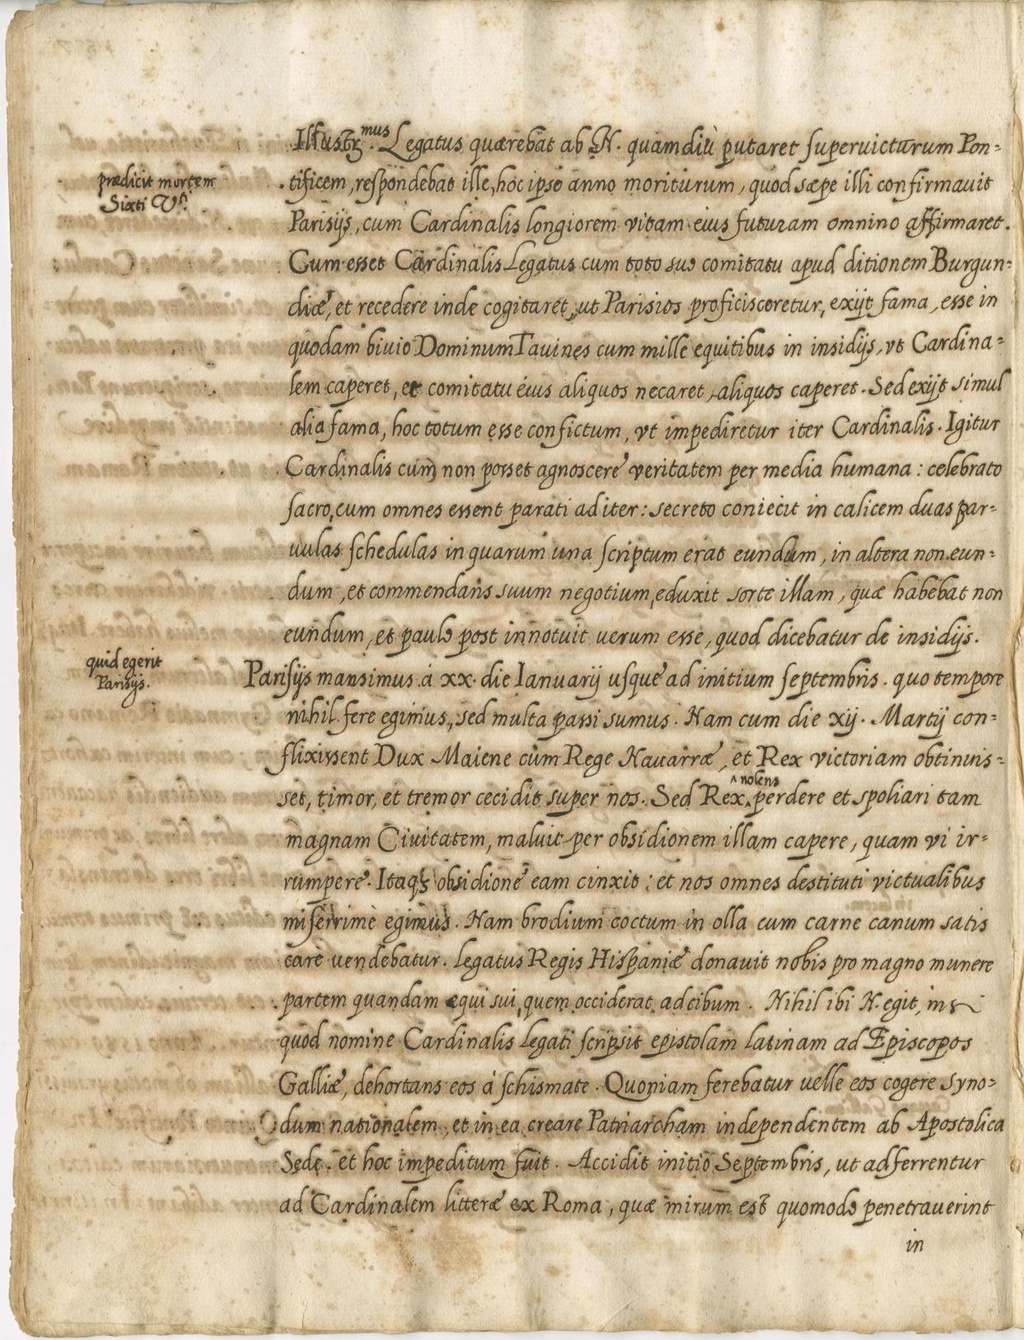 Illustriss.mus Legatus quærebat ab N. quamdiù putaret superuicturum Pon-
prædicit mortem
Sixti V.ti
tificem, respondebat ille, hoc ipso anno moriturum, quod sæpe illi confirmauit
Parisijs, cum Cardinalis longiorem vitam eius futuram omnino affirmaret.
Cum esset Cardinalis Legatus cum toto suo comitatu apud ditionem Burgun-
diæ, et recedere inde cogitaret, ut Parisios proficisceretur, exijt fama, esse in
quodam biuio Dominum Tauines cum mille equitibus in insidijs, vt Cardina-
lem caperet, et comitatu eius aliquos necaret, aliquos caperet. Sed exijt simul
alia fama, hoc totum esse confictum, vt impediretur iter Cardinalis. Igitur
Cardinalis cùm non posset agnoscere veritatem per media humana: celebrato
sacro, cum omnes essent parati ad iter: secreto coniecit in calicem duas par-
uulas schedulas in quarum una scriptum erat eundum, in altera non eun-
dum, et commendans suum negotium, eduxit sorte illam, quæ habebat non
eundum, et paulo post innotuit uerum esse, quod dicebatur de insidijs.
quid egerit
Parisijs.
Parisijs mansimus à xx. die Ianuarij usque ad initium septembris. quo tempore
nihil fere egimus, sed multa passi sumus. Nam cum die xij. Martij con-
flixissent Dux Maiene cùm Rege Nauarræ, et Rex victoriam obtinuis-
set, timor, et tremor cecidit super nos. Sed Rex ^nolens perdere et spoliari tam
magnam Ciuitatem, maluit per obsidionem illam capere, quam vi ir-
rumpere. Itaq; obsidione eam cinxit: et nos omnes destituti victualibus
miserrime egimus. Nam brodium coctum in olla cum carne canum satis
carè uendebatur. Legatus Regis Hispaniæ donauit nobis pro magno munere
partem quandam equi sui, quem occiderat ad cibum. Nihil ibi N. egit,
quòd nomine Cardinalis Legati scripsit epistolam latinam ad Episcopos
Galliæ, dehortans eos à schismate. Quoniam ferebatur uelle eos cogere syno-
dum nationalem, et in ea creare Patriarcham independentem ab Apostolica
Sede. et hoc impeditum fuit. Accidit initio Septembris, ut adferrentur
ad Cardinalem litteræ ex Roma, quæ mirum est quomodo penetrauerint
in